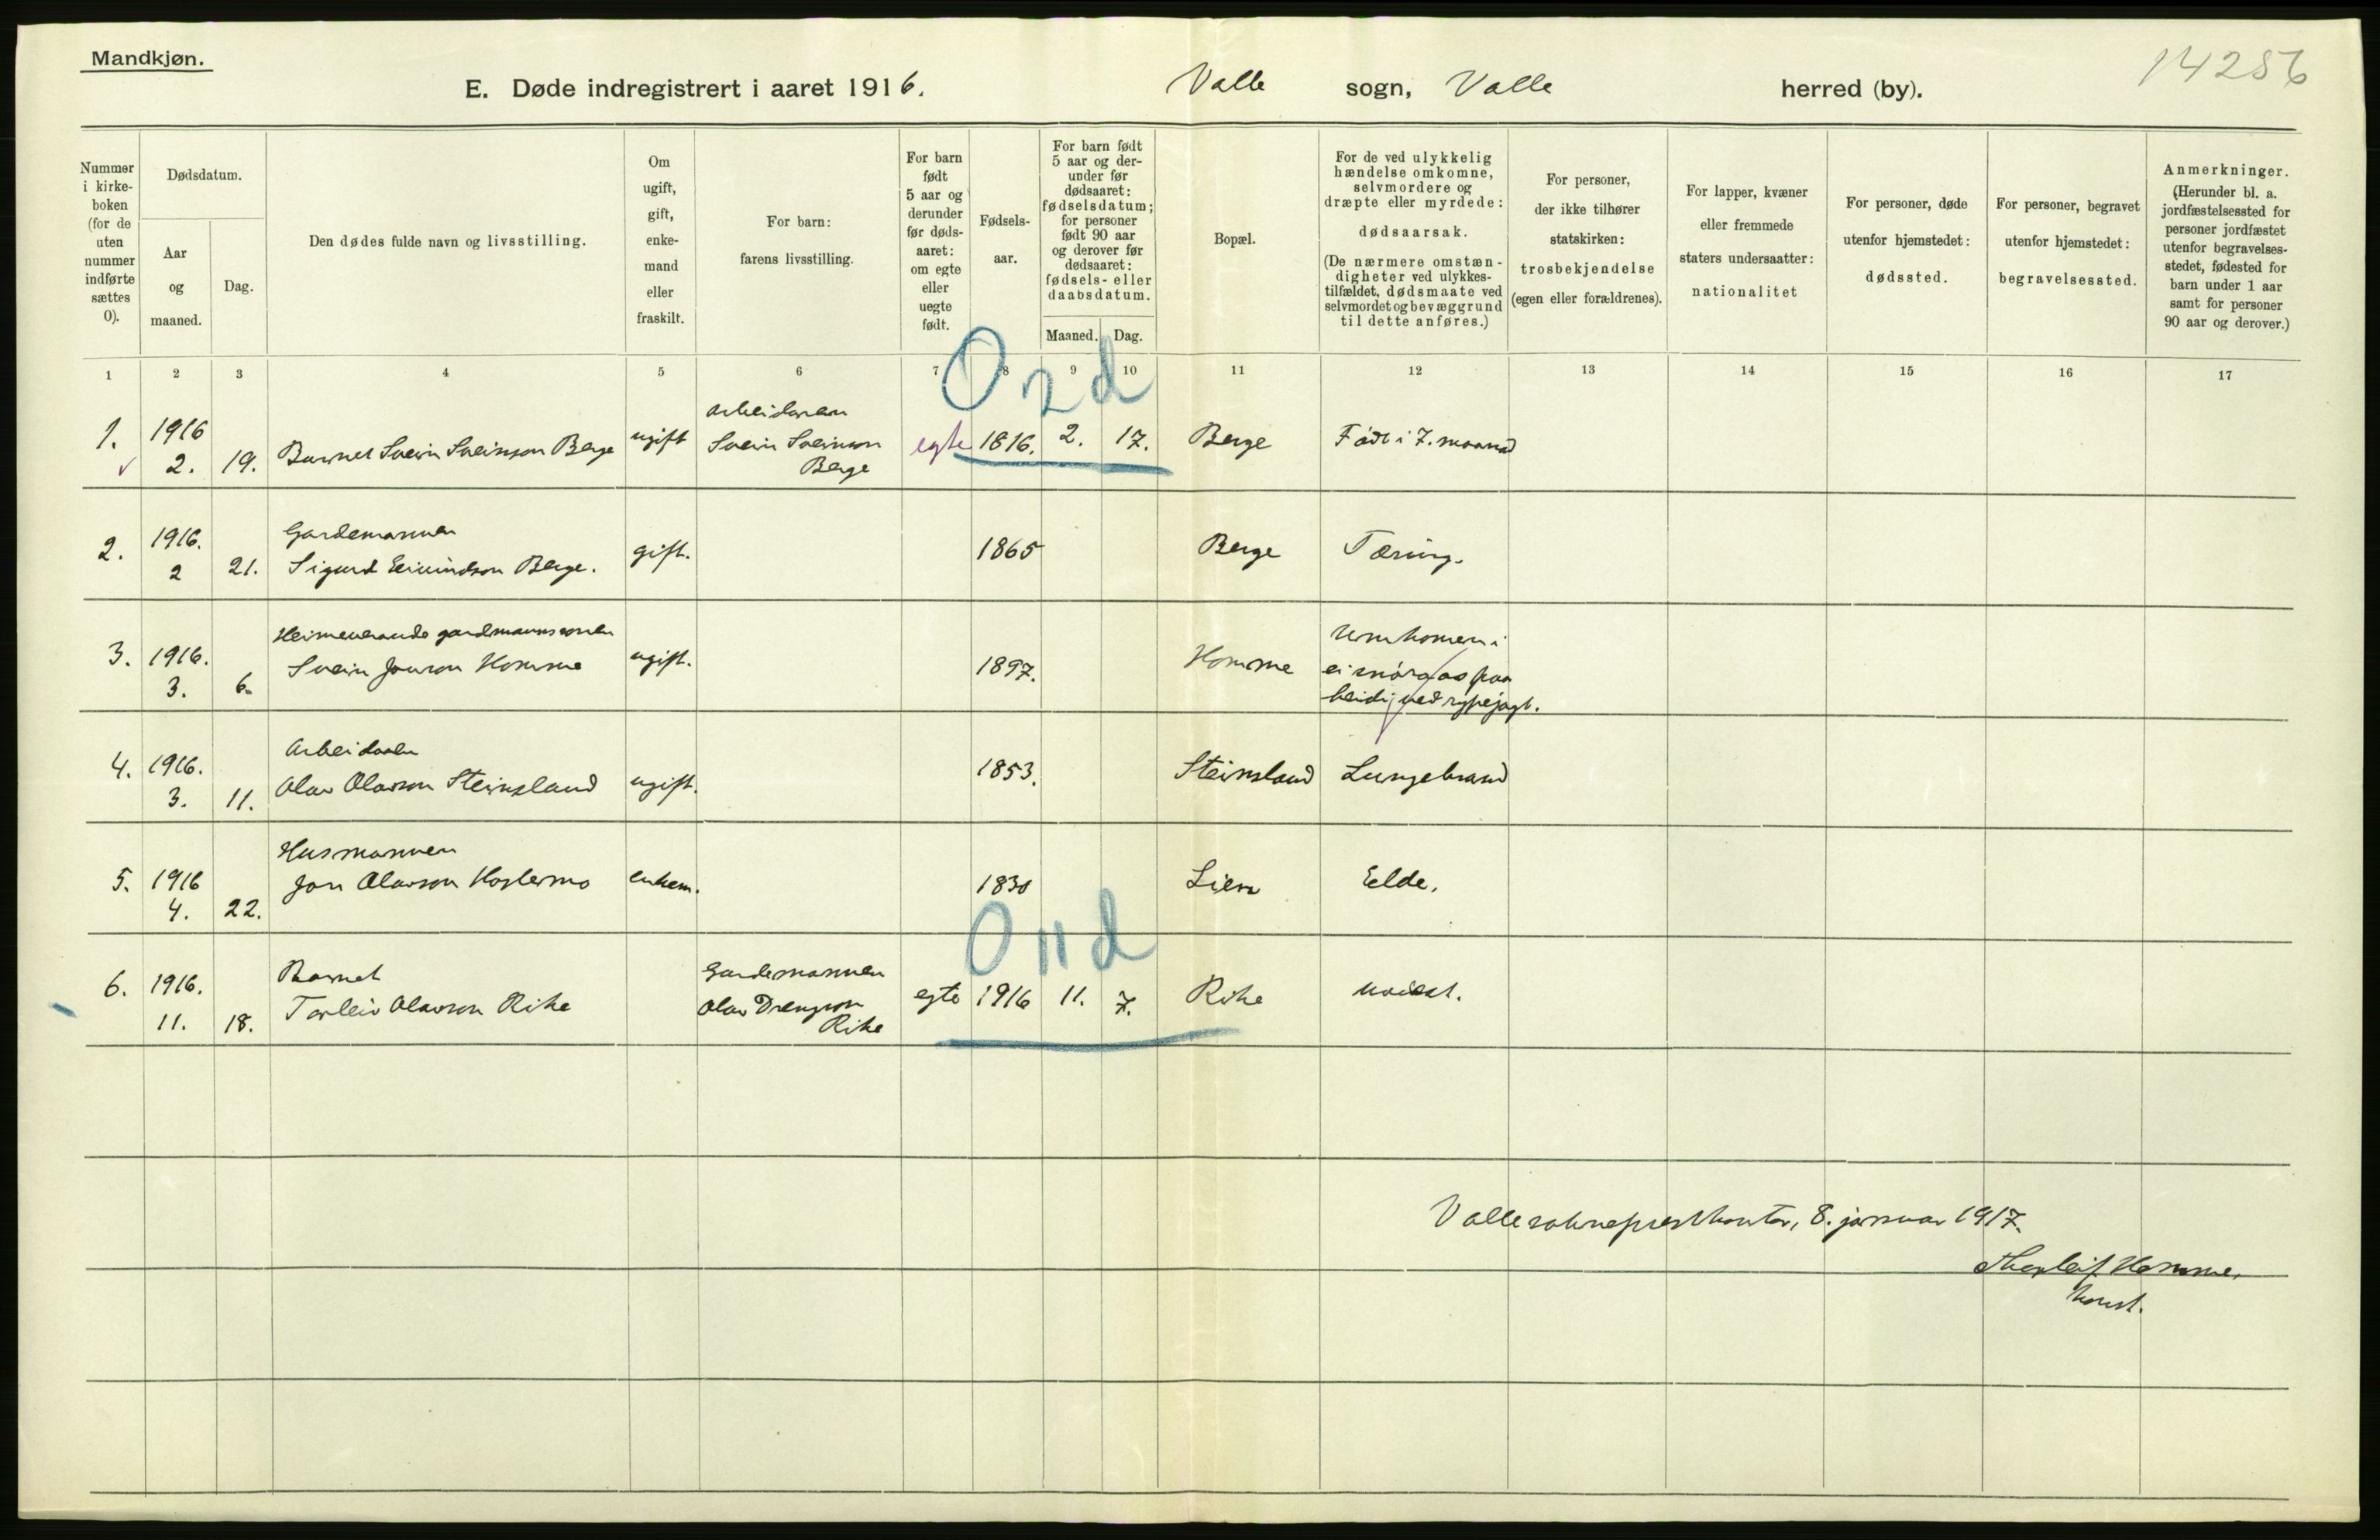 Mandkjøn.
14286
E. Døde indregistrert i aaret 1916. Valle sogn, Valle herred (by).
Nummer i kirke-boken (for de uten nummer indførte sættes 0).
Dødsdatum.
Aar og maaned.
Dag.
Den dødes fulde navn og livsstilling.
Om ugift, gift, enke-mand eller fraskilt.
For barn: farens livsstilling.
For barn født 5 aar og derunder før døds-aaret: om egte eller uegte født.
Fødsels-aar.
For barn født 5 aar og der-under før dødsaaret: fødselsdatum; for personer født 90 aar og derover før dødsaaret: fødsels- eller daabsdatum.
Maaned. Dag.
Bopæl.
For de ved ulykkelig hændelse omkomne, selvmordere og dræpte eller myrdede: dødsaarsak. (De nærmere omstæn-digheter ved ulykkes-tilfældet, dødsmaate ved selvmordet og bevæggrund til dette anføres.)
For personer, der ikke tilhører statskirken: trosbekjendelse (egen eller forældrenes).
For lapper, kvæner eller fremmede staters undersaatter: nationalitet
For personer, døde utenfor hjemstedet: dødssted.
For personer, begravet utenfor hjemstedet: begravelsessted.
Anmerkninger. (Herunder bl. a. jordfæstelsessted for personer jordfæstet utenfor begravelses-stedet, fødested for barn under 1 aar samt for personer 90 aar og derover.)
1 2 3 4 5 6 7 8 9 10 11 12 13 14 15 16 17
0 2 d
Arbeidaren
1. 1916 2. 19. Barnet Svein Sveinson Berge ugift Svein Sveinson Berge egte 1816. 2. 17. Berge Født i 7. maanad
Gardemannen
2. 1916. 2 21. Sigurd Eivindson Berge. gift. 1865 Berge Tæring.
Heimeverande gardmannssonen
3. 1916. 3. 6. Svein Jonson Homme ugift. 1897. Homme Umkomen i
ei snøraas paa
heidi ved rypejagt.
Arbeidaren
4. 1916. 3. 11. Olav Olavson Steinsland ugift. 1853. Steinsland Lungebrand
Husmannen
5. 1916 4. 22. Jon Olavson Haslemo enkem. 1830 Lien Elde.
0 11 d
Barnet Gardemannen
6. 1916. 11. 18. Torleiv Olavson Rike Olav Drengson Rike egte 1916 11. 7. Rike uvisst.
Valle soknepresthontor, 8. januar 1917.
Thorleif Homme,
konst.